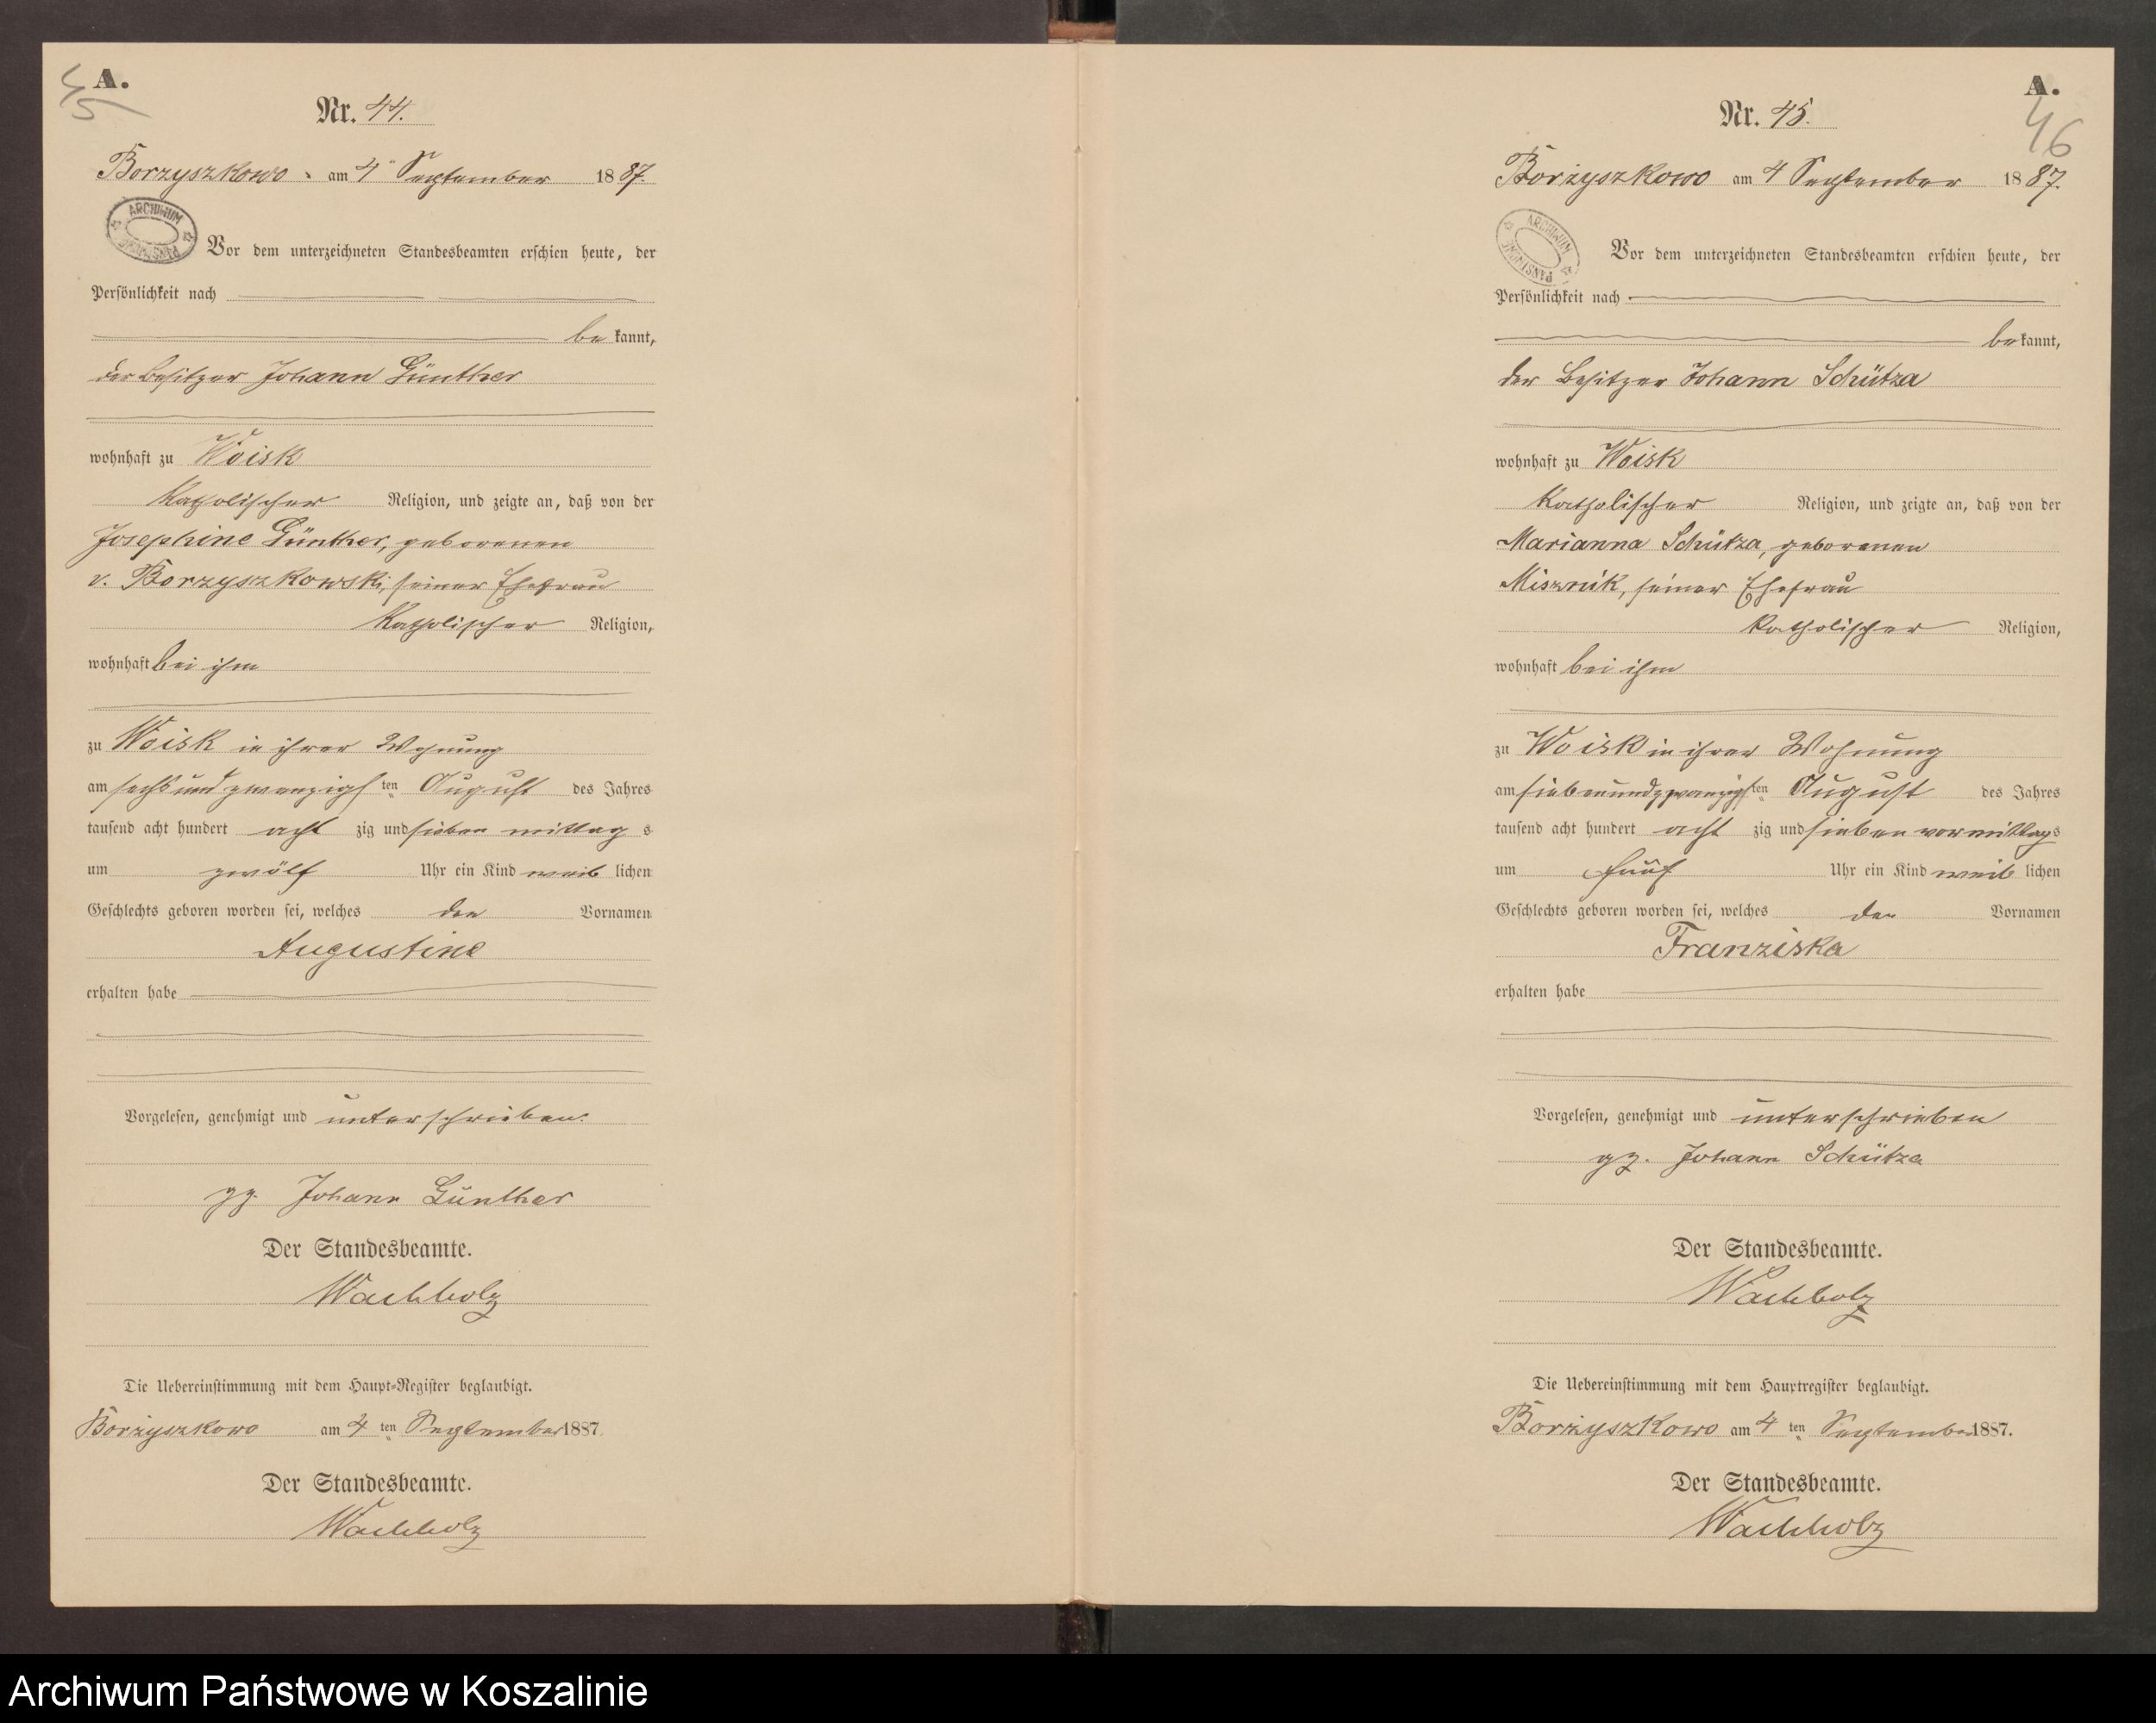 45
A.
Nr. 44.
Borzyszkowo, am 4ⁿ September 1887.
ARCHIWUM PAŃSTWOWE
Vor dem unterzeichneten Standesbeamten erschien heute, der
Persönlichkeit nach
be kannt,
der Besitzer Johann Günther
wohnhaft zu Woisk
Katholischer Religion, und zeigte an, daß von der
Josephine Günther, geborenen
v. Borzyszkowski, seiner Ehefrau
Katholischer Religion,
wohnhaft bei ihm
zu Woisk in ihrer Wohnung
am sechsundzwanzigsten August des Jahres
tausend acht hundert acht zig und sieben mittag s
um zwölf Uhr ein Kind weib lichen
Geschlechts geboren worden sei, welches den Vornamen
Augustine
erhalten habe
Vorgelesen, genehmigt und unterschrieben.
gz. Johann Günther
Der Standesbeamte.
Wachholz
Die Uebereinstimmung mit dem Haupt-Register beglaubigt.
Borzyszkowo am 4 ten September 1887.
Der Standesbeamte.
Wachholz
A.
46
Nr. 45.
Borzyszkowo am 4 September 1887.
ARCHIWUM PAŃSTWOWE
Vor dem unterzeichneten Standesbeamten erschien heute, der
Persönlichkeit nach
be kannt,
der Besitzer Johann Schütza
wohnhaft zu Woisk
Katholischer Religion, und zeigte an, daß von der
Marianna Schütza, geborenen
Misznik, seiner Ehefrau
Katholischer Religion,
wohnhaft bei ihm
zu Woisk in ihrer Wohnung
am siebenundzwanzigsten August des Jahres
tausend acht hundert acht zig und sieben vormittags
um fünf Uhr ein Kind weib lichen
Geschlechts geboren worden sei, welches den Vornamen
Franziska
erhalten habe
Vorgelesen, genehmigt und unterschrieben
gz. Johann Schütza
Der Standesbeamte.
Wachholz
Die Uebereinstimmung mit dem Hauptregister beglaubigt.
Borzyszkowo am 4 ten September 1887.
Der Standesbeamte.
Wachholz
Archiwum Państwowe w Koszalinie